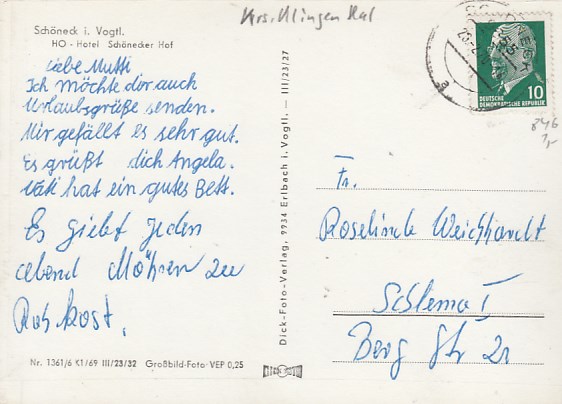 Schöneck i. Vogtl.
HO - Hotel Schönecker Hof
Krs. Klingen tal
Liebe Mutti
Ich möchte dir auch
Urlaubsgrüße senden.
Mir gefällt es sehr gut.
Es grüßt dich Angela.
Vati hat ein gutes Bett.
Es giebt jeden
abend Möhren zu
Roh kost.
Nr. 1361/6 K1/69 III/23/32 Großbild-Foto VEP 0,25
Dick-Foto-Verlag, 9934 Erlbach i. Vogtl. — III/23/27
DEUTSCHE
DEMOKRATISCHE REPUBLIK
10
846
Fr.
Roselinde Weichhardt
Schlema I
Berg Str 2